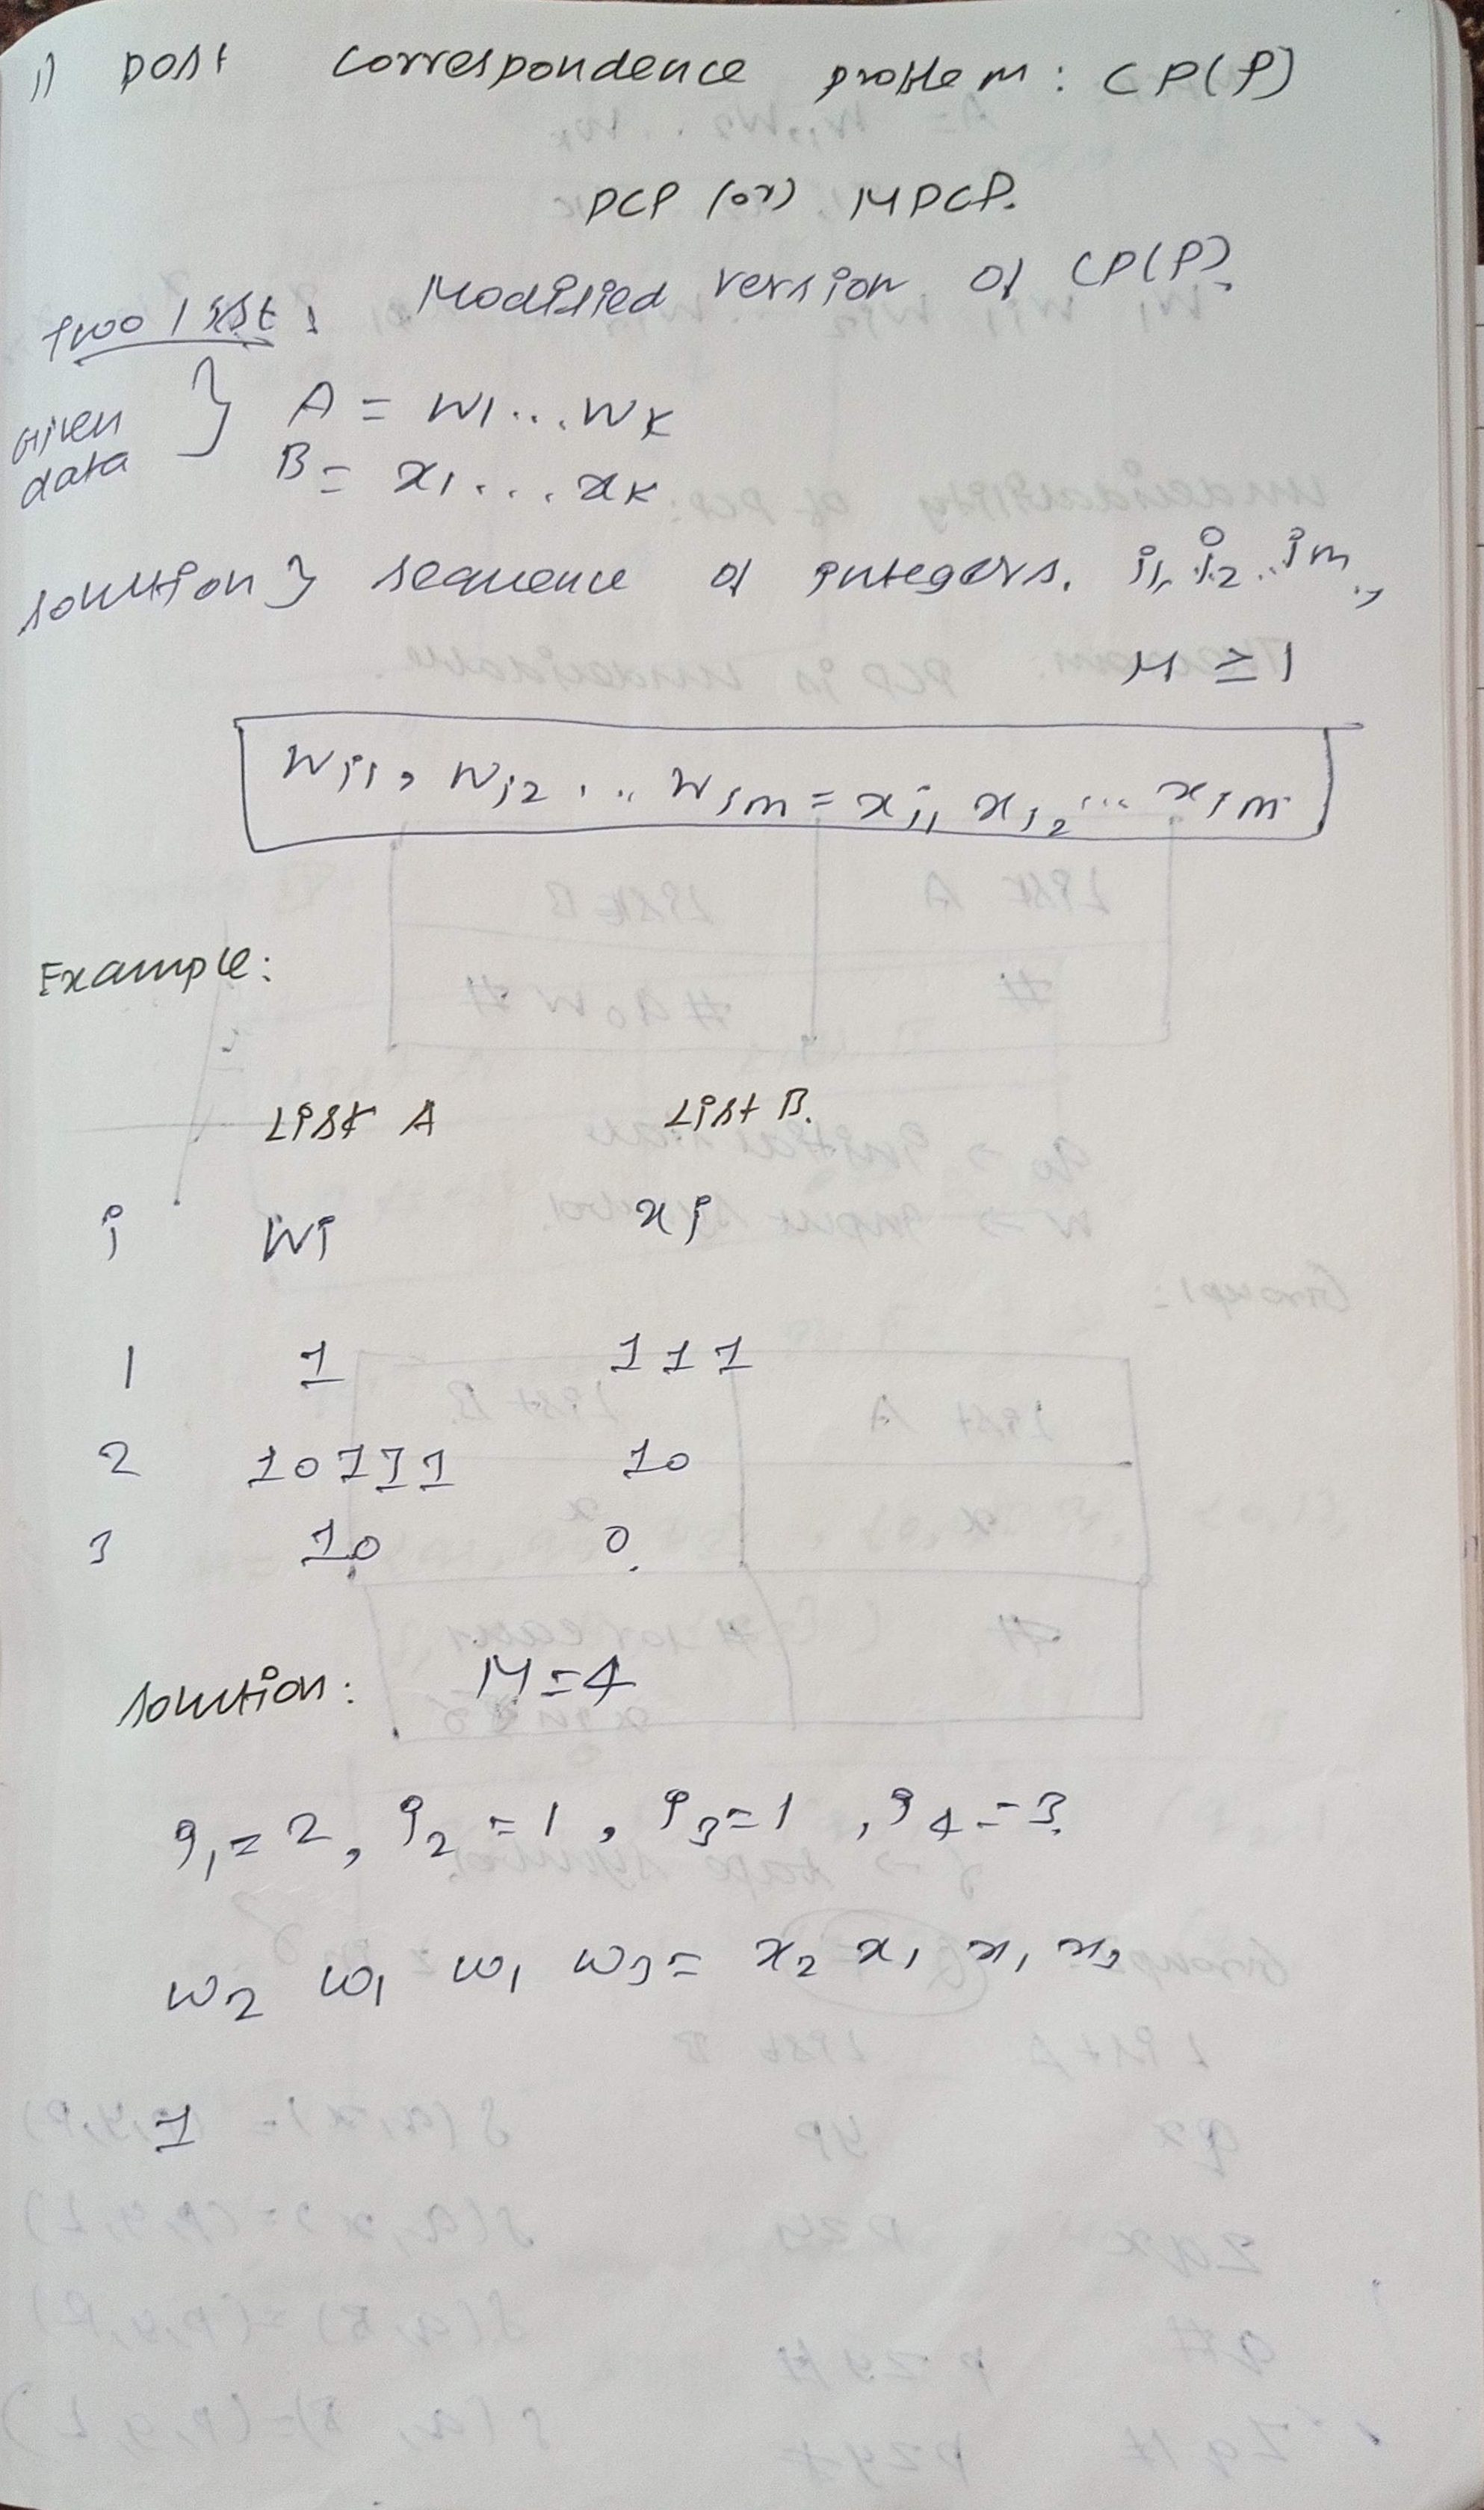 1) post correspondence problem : CP(P)
PCP (or) MPCP.
Modified version of CP(P).
two list :
given data } A = w1 ... wk
B = x1 ... xk
solution } sequence of integers. i1, i2 .. im,
M ≥ 1
wi1, wi2 ... wim = xi1 xi2 ... xim
Example:
List A List B.
i wi xi
1 1 111
2 10111 10
3 10 0.
solution: M = 4
i1 = 2, i2 = 1, i3 = 1, i4 = 3.
w2 w1 w1 w3 = x2 x1 x1 x3
1